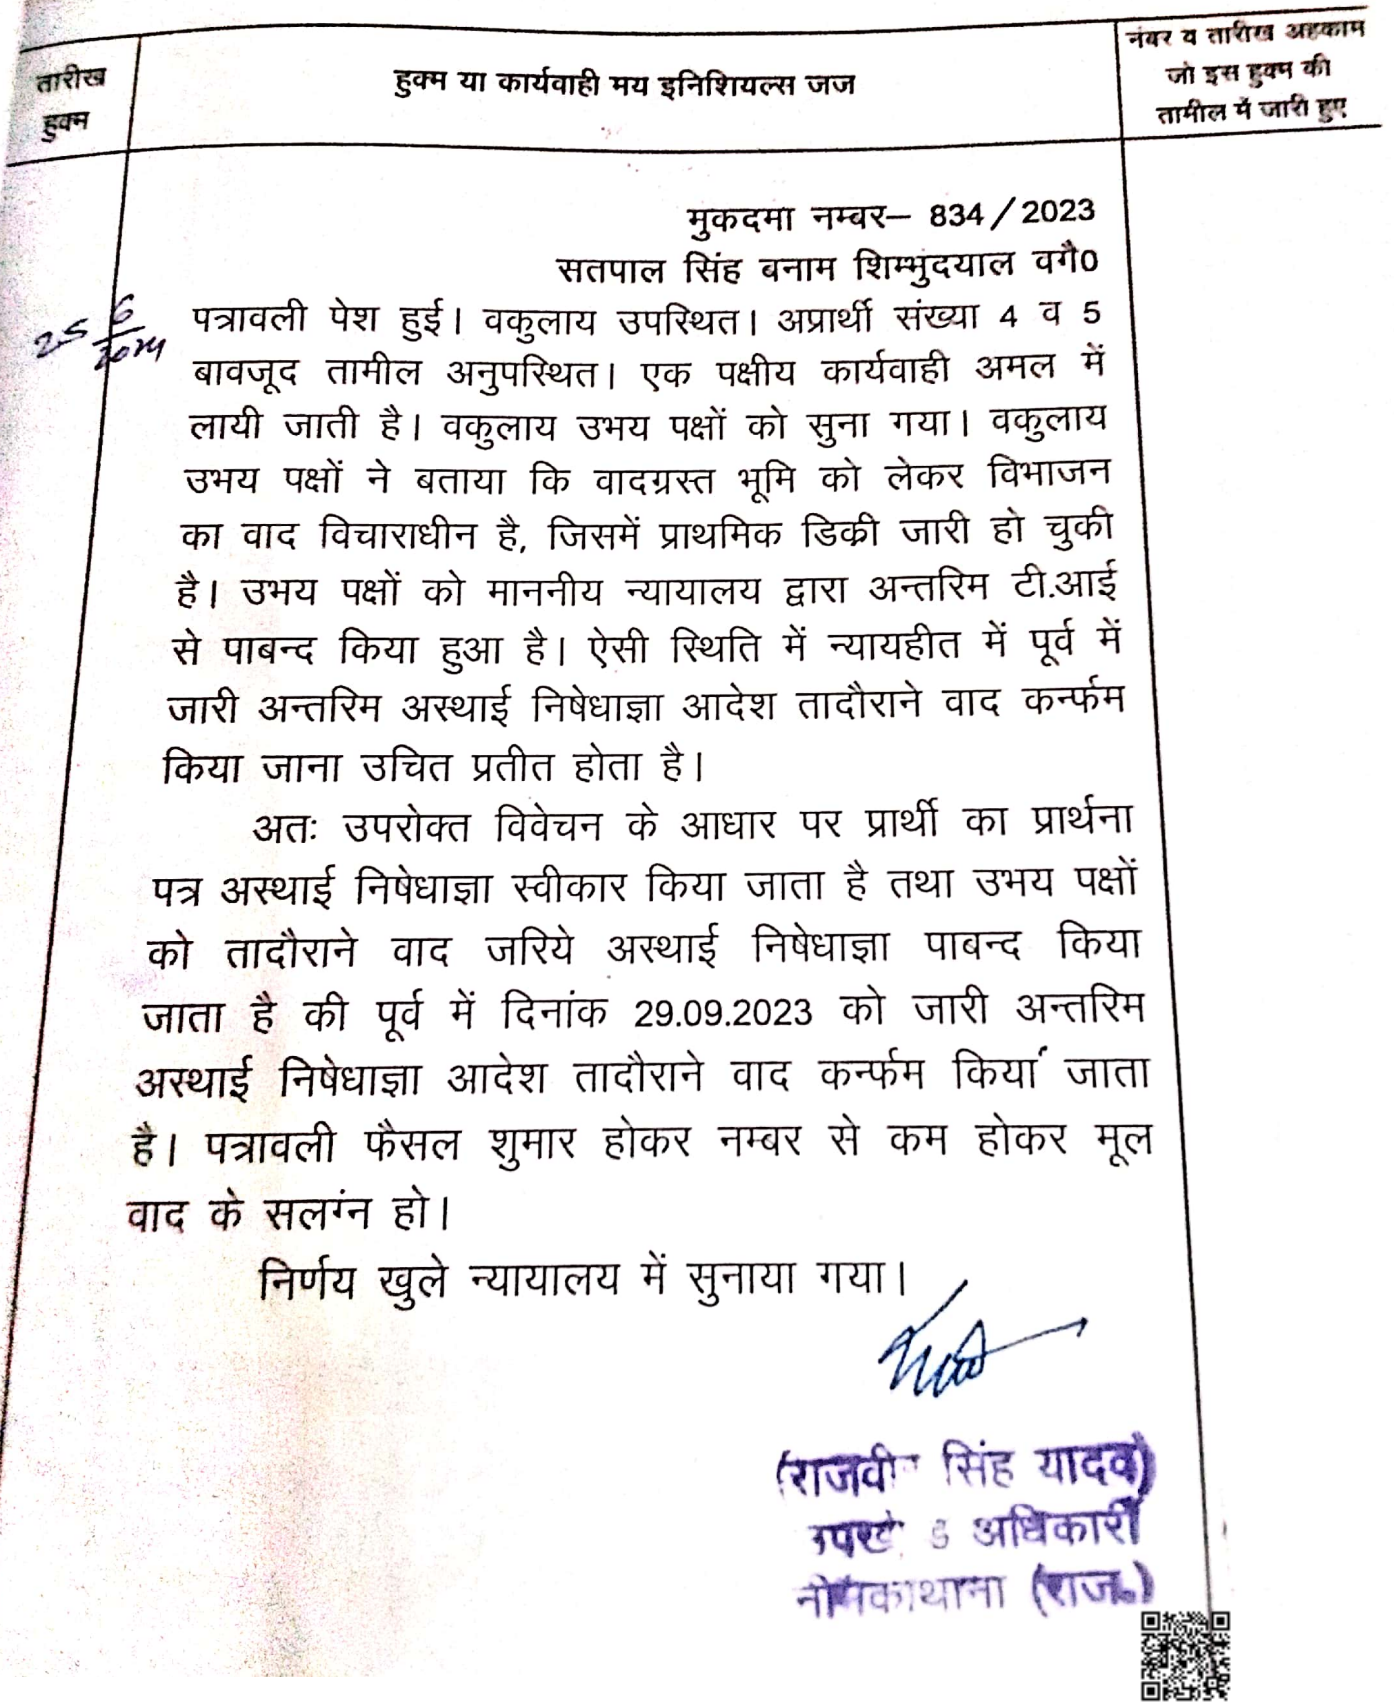 तारीख
हुक्म
हुक्म या कार्यवाही मय इनिशियल्स जज
नंबर व तारीख अहकाम
जो इस हुक्म की
तामील में जारी हुए
मुकदमा नम्बर– 834/2023
सतपाल सिंह बनाम शिम्भुंदयाल वगै0
25 6/2024
पत्रावली पेश हुई। वकुलाय उपस्थित। अप्रार्थी संख्या 4 व 5
बावजूद तामील अनुपस्थित। एक पक्षीय कार्यवाही अमल में
लायी जाती है। वकुलाय उभय पक्षों को सुना गया। वकुलाय
उभय पक्षों ने बताया कि वादग्रस्त भूमि को लेकर विभाजन
का वाद विचाराधीन है, जिसमें प्राथमिक डिक्री जारी हो चुकी
है। उभय पक्षों को माननीय न्यायालय द्वारा अन्तरिम टी.आई
से पाबन्द किया हुआ है। ऐसी स्थिति में न्यायहीत में पूर्व में
जारी अन्तरिम अस्थाई निषेधाज्ञा आदेश तादौराने वाद कर्न्फम
किया जाना उचित प्रतीत होता है।
अतः उपरोक्त विवेचन के आधार पर प्रार्थी का प्रार्थना
पत्र अस्थाई निषेधाज्ञा स्वीकार किया जाता है तथा उभय पक्षों
को तादौराने वाद जरिये अस्थाई निषेधाज्ञा पाबन्द किया
जाता है की पूर्व में दिनांक 29.09.2023 को जारी अन्तरिम
अस्थाई निषेधाज्ञा आदेश तादौराने वाद कर्न्फम किया जाता
है। पत्रावली फैसल शुमार होकर नम्बर से कम होकर मूल
वाद के सलग्ंन हो।
निर्णय खुले न्यायालय में सुनाया गया।
(राजवीर सिंह यादव)
उपखंड अधिकारी
नीमकाथाना (राज०)